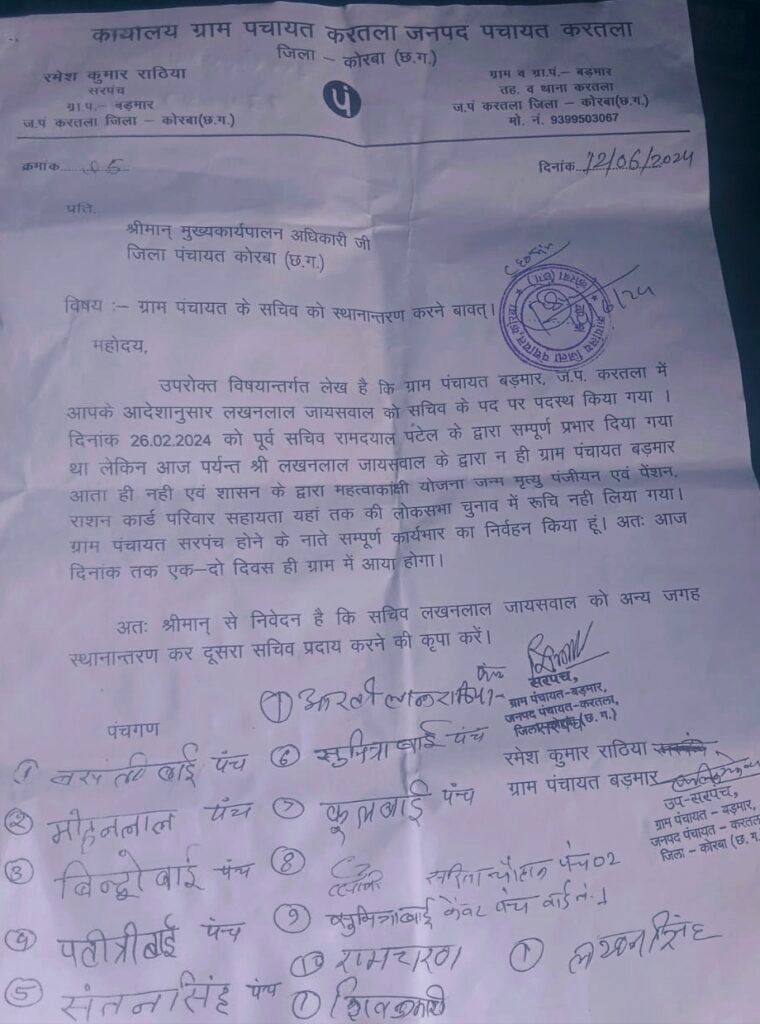 कार्यालय ग्राम पंचायत करतला जनपद पंचायत करतला
जिला – कोरबा (छ.ग.)
रमेश कुमार राठिया
सरपंच
ग्रा.पं.– बड़मार
ज.पं करतला जिला – कोरबा(छ.ग.)
पं
ग्राम व ग्रा.पं.– बड़मार
तह. व थाना करतला
ज.पं करतला जिला – कोरबा(छ.ग.)
मो. नं. 9399503067
क्रमांक....05....
दिनांक...12/06/2024
प्रति,
श्रीमान् मुख्यकार्यपालन अधिकारी जी
जिला पंचायत कोरबा (छ.ग.)
विषय :– ग्राम पंचायत के सचिव को स्थानान्तरण करने बावत्।
महोदय,
उपरोक्त विषयान्तर्गत लेख है कि ग्राम पंचायत बड़मार, ज.पं. करतला में
आपके आदेशानुसार लखनलाल जायसवाल को सचिव के पद पर पदस्थ किया गया ।
दिनांक 26.02.2024 को पूर्व सचिव रामदयाल पटेल के द्वारा सम्पूर्ण प्रभार दिया गया
था लेकिन आज पर्यन्त श्री लखनलाल जायसवाल के द्वारा न ही ग्राम पंचायत बड़मार
आता ही नही एवं शासन के द्वारा महत्वाकांक्षी योजना जन्म मृत्यु पंजीयन एवं पेंशन,
राशन कार्ड परिवार सहायता यहां तक की लोकसभा चुनाव में रूचि नही लिया गया।
ग्राम पंचायत सरपंच होने के नाते सम्पूर्ण कार्यभार का निर्वहन किया हूं। अतः आज
दिनांक तक एक–दो दिवस ही ग्राम में आया होगा।
अतः श्रीमान् से निवेदन है कि सचिव लखनलाल जायसवाल को अन्य जगह
स्थानान्तरण कर दूसरा सचिव प्रदाय करने की कृपा करें।
सरपंच,
ग्राम पंचायत-बड़मार,
जनपद पंचायत-करतला,
रमेश कुमार राठिया
ग्राम पंचायत बड़मार
उप-सरपंच,
ग्राम पंचायत – बड़मार,
जनपद पंचायत – करतला
जिला – कोरबा (छ.ग.)
पंचगण
① बाई पंच
② मोहनलाल पंच
③ बिन्दो बाई पंच
④ बाई पंच
⑤ संतन सिंह पंच
⑥ सुमित्रा बाई पंच
⑦ फूलबाई पंच
⑧ सरिता चौहान पंच 02
⑨ सुमित्रा बाई केंवट पंच वार्ड नं. 1
⑩ रामचरण
① लखन सिंह
① शिवकुमारी